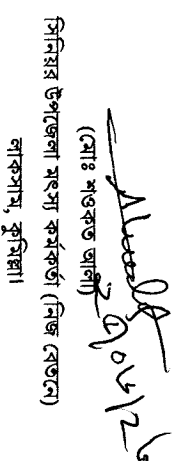 (মোঃ শওকত আলী)
সিনিয়র উপজেলা মৎস্য কর্মকর্তা (নিজ বেতনে)
লাকসাম, কুমিল্লা।